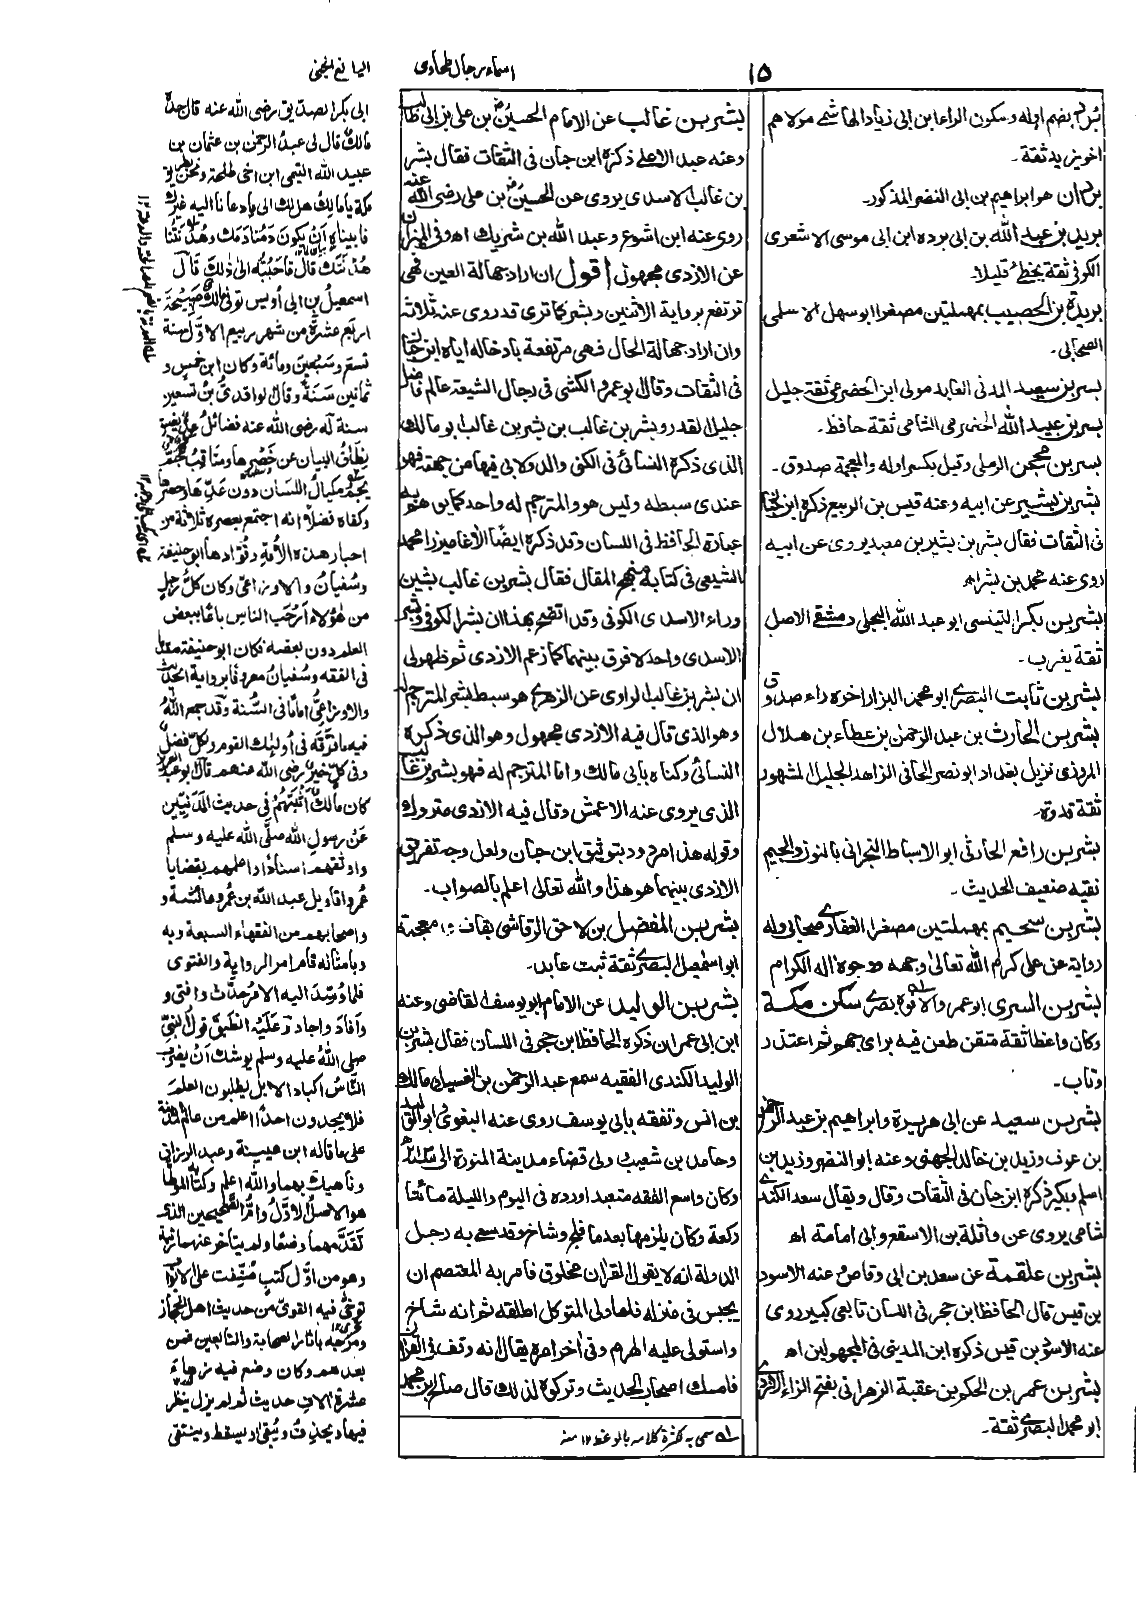 ١٥
اسماء رجال طحاوى
اليانع الجنى
برد بضم اوله وسكون الراء ابن ابى زياد الهاشمى مولاهم
اخو يزيد ثقة۔
بردان هو ابراهيم بن ابى النضر المذكور۔
بريد بن عبد الله بن ابى برده ابن ابى موسى الاشعرى
الكوفى ثقة يخطئ قليلا۔
بريدة بن الحصيب بمهملتين مصغرا ابو سهل الاسلمى
الصحابى۔
بسر بن سعيد المدنى العابد مولى ابن الحضرمى ثقة جليل
بسر بن عبيد الله الحضرمى الشامى ثقة حافظ۔
بسر بن محجن الدئلى وقيل بكسر اوله والمعجمة صدوق۔
بشر بن بشير عن ابيه وعنه قيس بن الربيع ذكره ابن حبان
فى الثقات فقال بشر بن بشير بن معبد يروى عن ابيه
روى عنه محمد بن بشر اه
بشر بن بكر التنيسى ابو عبد الله البجلى دمشقى الاصل
ثقة يغرب۔
بشر بن ثابت البصرى ابو محمد البزار اخره راء صدوق
بشر بن الحارث بن عبد الرحمن بن عطاء بن هلال
المروزى نزيل بغداد ابو نصر الحافى الزاهد الجليل المشهور
ثقة قدوة۔
بشر بن رافع الحارثى ابو الاسباط النجرانى بالنون والجيم
فقيه ضعيف الحديث۔
بشر بن سحيم بمهملتين مصغرا الغفارى صحابى وله
رواية عن على كرم الله تعالى وجهه ووجوه اله الكرام
بشر بن السرى ابو عمرو الافوه بصرى سكن مكة
وكان واعظا ثقة متقن طعن فيه براى جهم ثم اعتذر
وتاب۔
بشر بن سعيد عن ابى هريرة وابراهيم بن عبد الرحمن
بن عوف وزيد بن خالد الجهنى وعنه ابو النضر وزيد بن
اسلم وبكير ذكره ابن حبان فى الثقات وقال ويقال سعد الكندى
شامى يروى عن واثلة بن الاسقع وابى امامة اه
بشر بن علقمة عن سعد بن ابى وقاص وعنه الاسود
بن قيس قال الحافظ ابن حجر فى اللسان تابعى كبير روى
عنه الاسود بن قيس ذكره ابن المدينى فى المجهولين اه
بشر بن عمر بن الحكم بن عقبة الزهرانى بفتح الزاء الازدى
ابو محمد البصرى ثقة۔
بشر بن غالب عن الامام الحسين بن على بن ابى طالب
وعنه عبد الاعلى ذكره ابن حبان فى الثقات فقال بشر
بن غالب الاسدى يروى عن الحسين بن على رضى الله عنه
روى عنه ابن اشوع وعبد الله بن شريك اه وفى الميزان
عن الازدى مجهول اقول ان اراد جهالة العين فهى
ترتفع برواية الاثنين وبشر كما ترى قد روى عنه ثلاثة
وان اراد جهالة الحال فهى مرتفعة بادخاله اياه ابن حبان
فى الثقات وقال ابو عمرو الكشى فى رجال الشيعة عالم فاضل
جليل القدر وبشر بن غالب بن بشر بن غالب ابو مالك
الذى ذكره النسائى فى الكنى والدولابى فيها من جهته فهو
عندى سبطه وليس هو والمترجم له واحد كما
عبارة الحافظ فى اللسان وقد ذكره ايضا الاغا ميرزا محمد
الشيعى فى كتابه منهج المقال فقال بشر بن غالب بشين
وراء الاسدى الكوفى وقد اتضح بهذا ان بشر الكوفى وبشر
الاسدى واحد لا فرق بينهما كما زعم الازدى ثم ظهر لى
ان بشر بن غالب الراوى عن الزهرى هو سبط بشر المترجم له
وهو الذى قال فيه الازدى مجهول وهو الذى ذكره
النسائى وكناه بابى مالك واما المترجم له فهو بشر بن غالب
الذى يروى عنه الاعمش وقال فيه الازدى متروك
وقوله هذا مردود بتوثيق ابن حبان ولعل وجه تفرقة
الازدى بينهما هو هذا والله تعالى اعلم بالصواب۔
بشر بن المفضل بن لاحق الرقاشى بقاف معجمة
ابو اسمعيل البصرى ثقة ثبت عابد۔
بشر بن الوليد عن الامام ابو يوسف القاضى وعنه
ابن ابى عمران ذكره الحافظ ابن حجر فى اللسان فقال بشر بن
الوليد الكندى الفقيه سمع عبد الرحمن بن الغسيل ومالك
بن انس وتفقه بابى يوسف روى عنه البغوى وابو القاسم
وحامد بن شعيب ولى قضاء مدينة المنورة الى سنة
وكان واسع الفقه متعبد اورده فى اليوم والليلة مائتا
ركعة وكان يلزمها بعد ما فلج وشاخ وقد سعى به رجل
الدولة انه لا يقول القران مخلوق فامر به المعتصم ان
يحبس فى منزله فلما ولى المتوكل اطلقه ثم انه شاخ
واستولى عليه الهرم وفى اخر امره يقال انه وقف فى القران
فامسك اصحاب الحديث وتركوه لذلك قال صالح بن محمد
له سمى به لكثرة كلامه بالوعظ ١٢ منه
ابى بكر الصديق رضى الله عنه قال حدثنى
مالك قال لى عبد الرحمن بن عثمان بن
عبيد الله التيمى ابن اخى طلحة ونحن بطريق
مكة يا مالك هل لك الى ما دعانا اليه غيرك
فابيناه ان يكون دمنا دمك وهدمنا
هدمك قال فاجبته الى ذلك قال
اسمعيل بن ابى اويس توفى مالك صبيحة
اربع عشرة من شهر ربيع الاول سنة
تسع وسبعين ومائة وكان ابن خمس و
ثمانين سنة وقال الواقدى بن تسعين
سنة له رضى الله عنه فضائل يضيق
نطاق البيان عن حصرها ومناقب
مكيال اللسان دون عدها
وكفاه فضلا انه اجتمع بعصره ثلاثة من
احبار هذه الامة وقوادها ابو حنيفة
وسفيان والاوزاعى وكان كل رجل
من هؤلاء ارحب الناس باعا ببعض
العلم دون بعضه فكان ابو حنيفة
فى الفقه وسفيان معروفا برواية الحديث
والاوزاعى اماما فى السنة وقد جمع الله
فيه ما فرقه فى اولئك القوم وكل فضل
وفى كل خير رضى الله عنهم قال ابو عبد
كان مالك اثبتهم فى حديث المدنيين
عن رسول الله صلى الله عليه وسلم
واوثقهم اسنادا واعلمهم بقضايا
عمر واقاويل عبد الله بن عمر وعائشة و
واصحابهم من الفقهاء السبعة وبه
وبامثاله قام امر الرواية والفتوى
فلما وسد اليه الامر حدث وافتى و
وافاد واجاد وعليه انطبق قول النبى
صلى الله عليه وسلم يوشك ان يضرب
الناس اكباد الابل يطلبون العلم
فلا يجدون احدا اعلم من عالم المدينة
على ما قاله ابن عيينة وعبد الرزاق
وناهيك بهما والله اعلم وكتابه الموطأ
هو الاصل الاول وام الصحيحين الذى
تقدمهما وضعا ولم يتأخر عنهما رتبة
وهو من اول كتب صنفت على الابواب
توخى فيه القوى من حديث اهل الحجاز
ومزجه باثار الصحابة والتابعين فمن
بعدهم وكان وضع فيه زهاء
عشرة الاف حديث ثم لم يزل ينظر
فيها ويحذف ويبقى ويسقط وينتقى